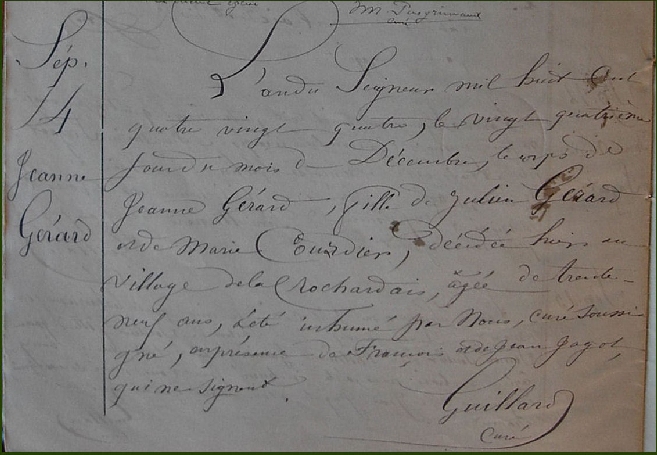 Sép.
14
Jeanne
Gérard
L'an du Seigneur mil huit Cent
quatre vingt quatre, le vingt quatrième
jour du mois de Décembre, le corps de
Jeanne Gérard, fille de Julien Gérard
et de Marie Bourdier, décédée hier au
village de la Rochardais, âgée de trente-
neuf ans, a été inhumé par Nous, curé soussi
gné, en présence de François et de Jean Gogot,
qui ne signent.
Guillard
curé